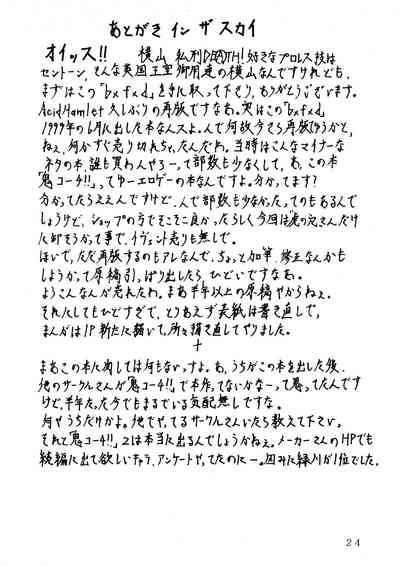 あとがき イン ザ スカイ
オイッス!! 横山 私刑DEATH! 好きなプロレス技は
セントーン、そんな英国王室御用達の横山なんですけれども、
まずはこの「bxfxd」を手に取って下さり、ありがとうございます。
AcidHamlet 久しぶりの再版ですなあ。実はこの「bxfxd」
1999年の6月に出した本なんスよ。んで何故今さら再版かゆうかと、
ねえ、何かすぐ売り切れちゃたんだわ。当時はこんなマイナーな
ネタの本、誰も買わんやろーって部数も少なくして。あ、この本
「鬼コーチ!!」ってゆーエロゲーの本なんですよ。分かってます?
分かってたらええんですけど、んで部数も少なかった。ってのもあるんで
しょうけど、ショップの方でそこそこ良かったらしく今回は虎の穴さんだけ
に卸そうかって事で、イヴェント売りも無しで。
ほいで、ただ再版するのもアレなんで、ちょっと加筆、修正なんかも
しようかって原稿引っぱり出したら、ひどいですなあ。
ようこんなんが売れたわ。まあ半年以上の原稿やからねえ。
それにしてもひどすぎで、とりあえず表紙は書き直しで、
まんがは1P新たに描いて、所々描き直してやりました。
+
まあこの本に関しては何もないっすよ。あ、うちがこの本を出した後、
他のサークルさんが「鬼コーチ!!」で本作ってないかなーって思ってたんです
けど、半年たった今でもまるでいる気配無しですな。
何やうちだけかよ。他でやってるサークルさんいたら教えて下さい。
それと「鬼コーチ!!」2は本当に出るんでしょうかねえ。メーカーさんのHPでも
続編に出て欲しいキャラ、アンケートやってたのにー。因みに緑川が1位でした。
24